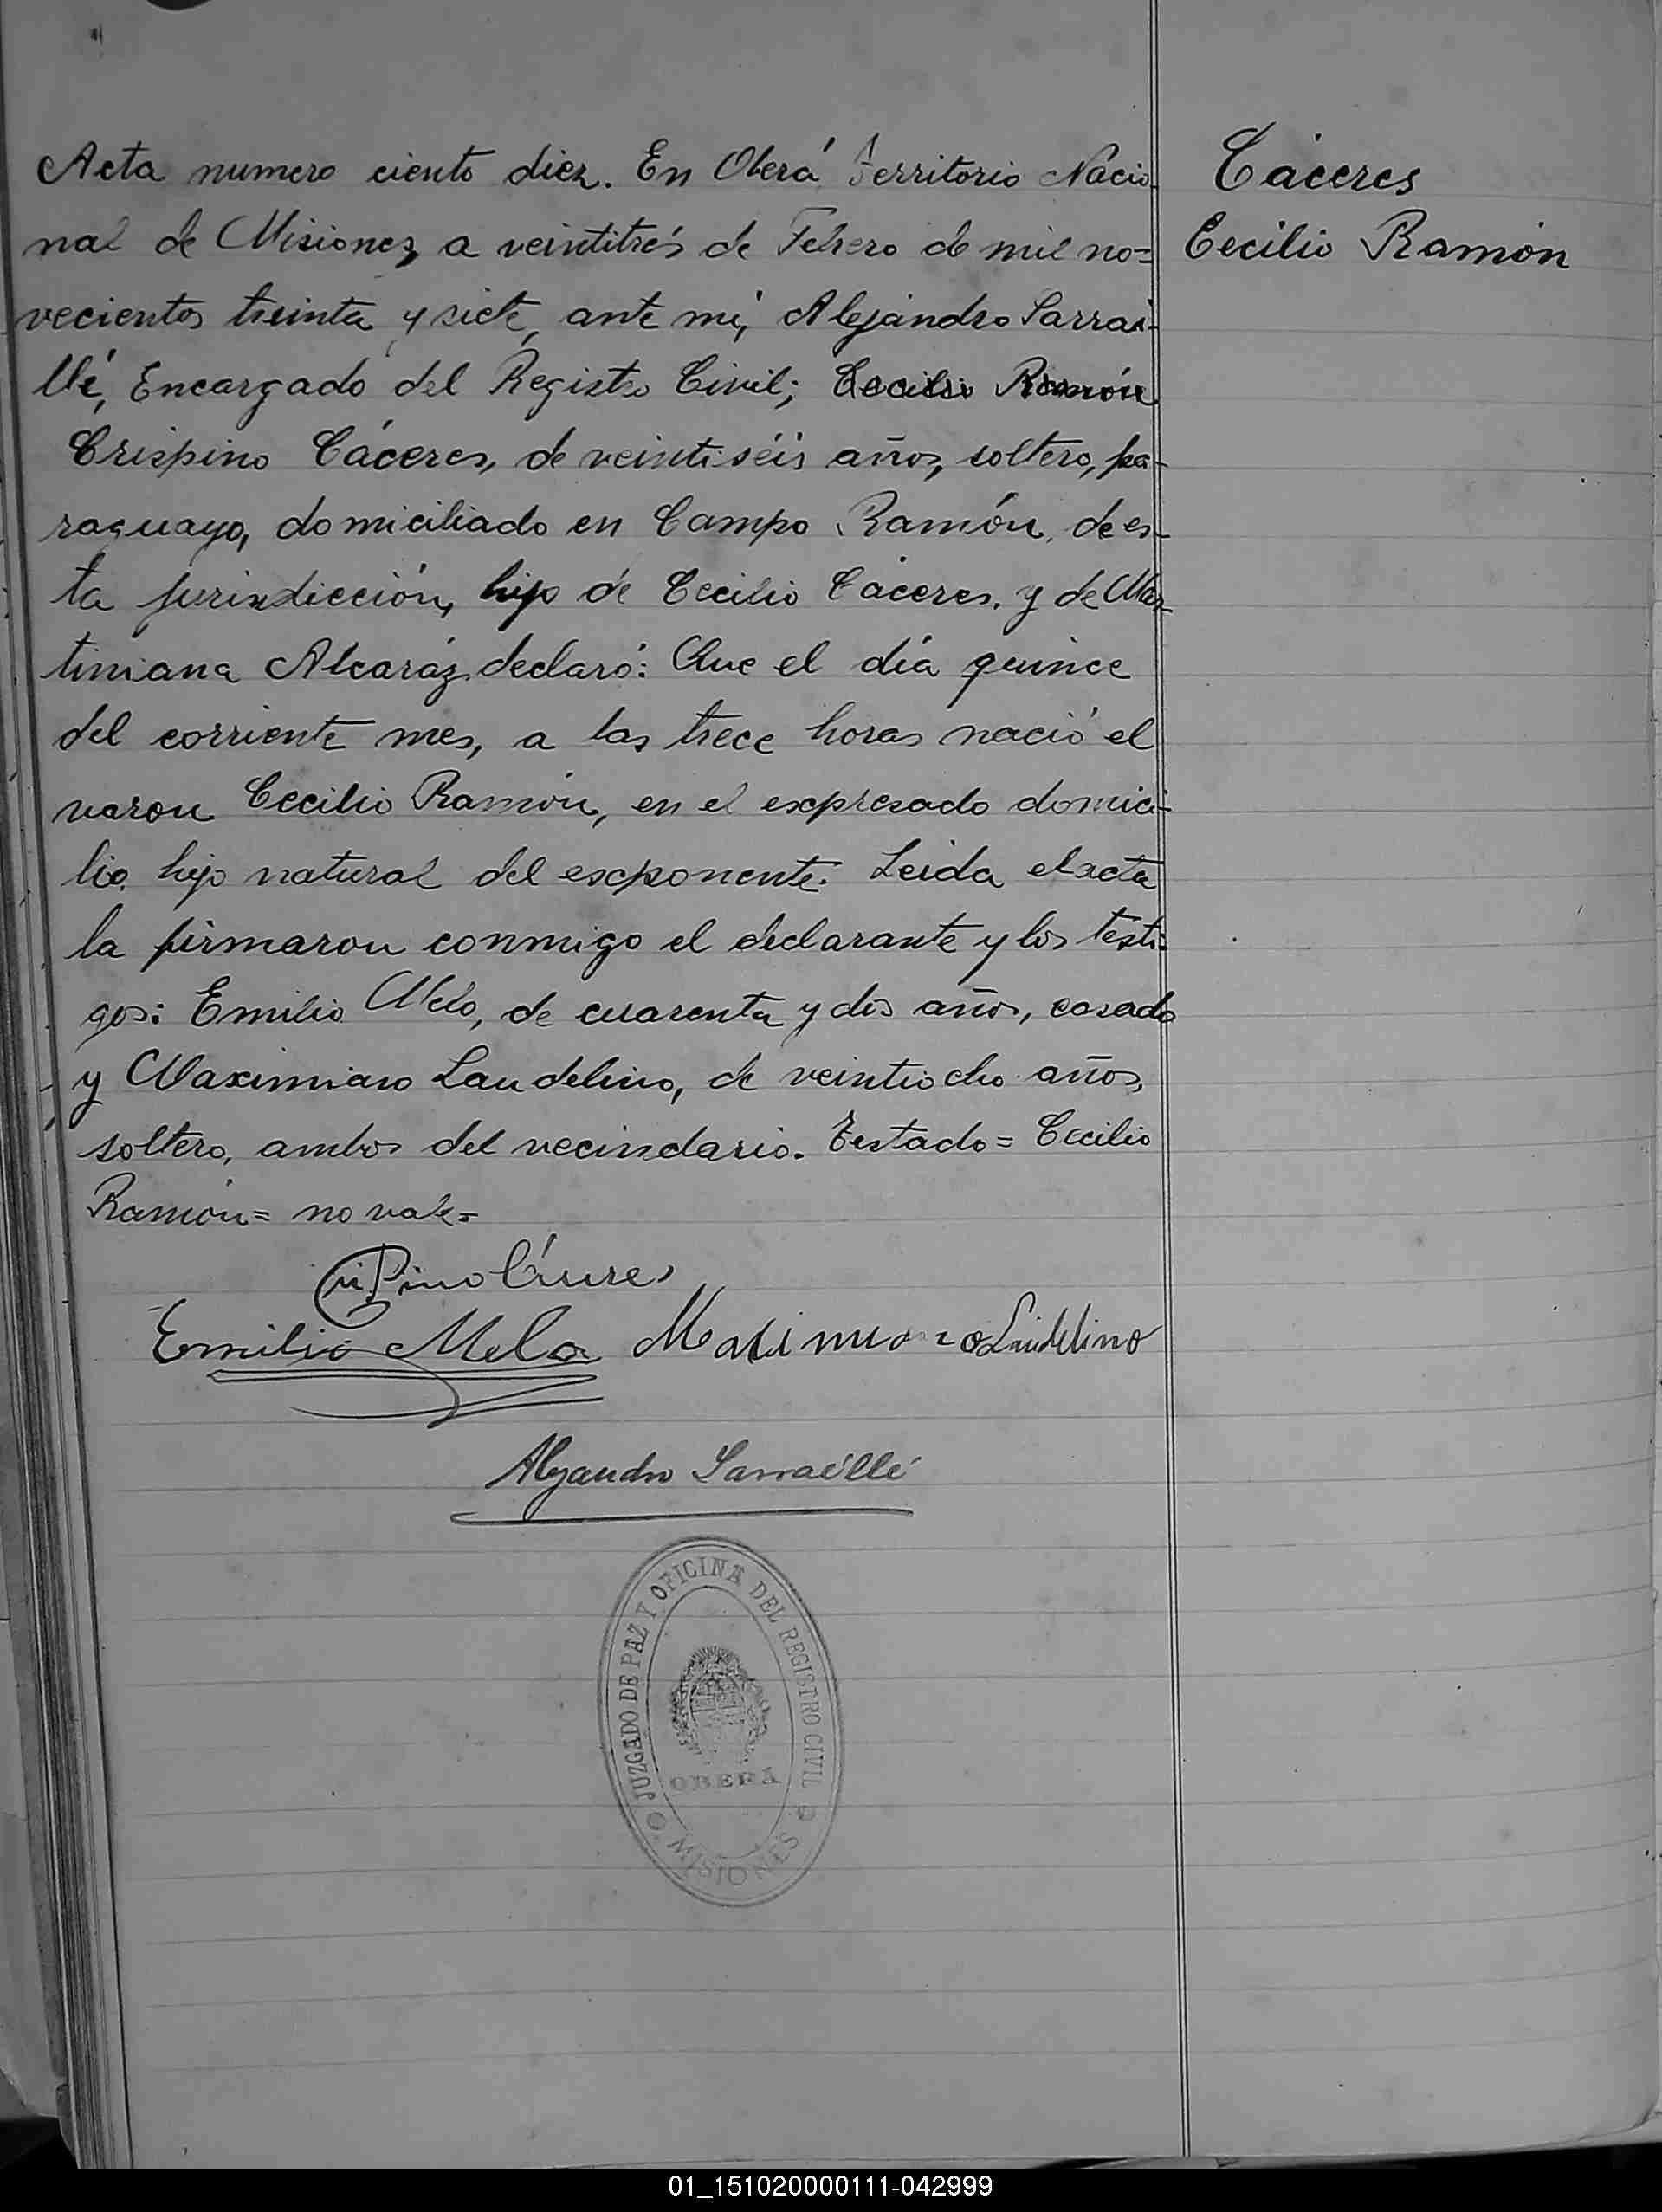 Acta numero ciento diez. En Oberá Territorio Nacio-
nal de Misiones, a veintitrés de Febrero de mil no=
vecientos treinta y siete, ante mi, Alejandro Sarrai-
llé, Encargado del Registro Civil; Cecilio Ramón
Crispino Cáceres, de veintiséis años, soltero, pa-
raguayo, domiciliado en Campo Ramón, de es-
ta jurisdicción, hijo de Cecilio Cáceres, y de Mar-
tiniana Alcaráz, declaró: Que el día quince
del corriente mes, a las trece horas nació el
varon Cecilio Ramón, en el expresado domici-
lio, hijo natural del exponente. Leida el acta
la firmaron conmigo el declarante y los testi-
gos: Emilio Melo, de cuarenta y dos años, casado
y Maximiano Laudelino, de veintiocho años,
soltero, ambos del vecindario. Testado = Cecilio
Ramón = no vale =
Cáceres
Cecilio Ramón
Crispino Cáceres
Emilio Melo Maximiano Laudelino
Alejandro Sarraillé
JUZGADO DE PAZ Y OFICINA DEL REGISTRO CIVIL
OBERÁ
MISIONES
01_151020000111-042999